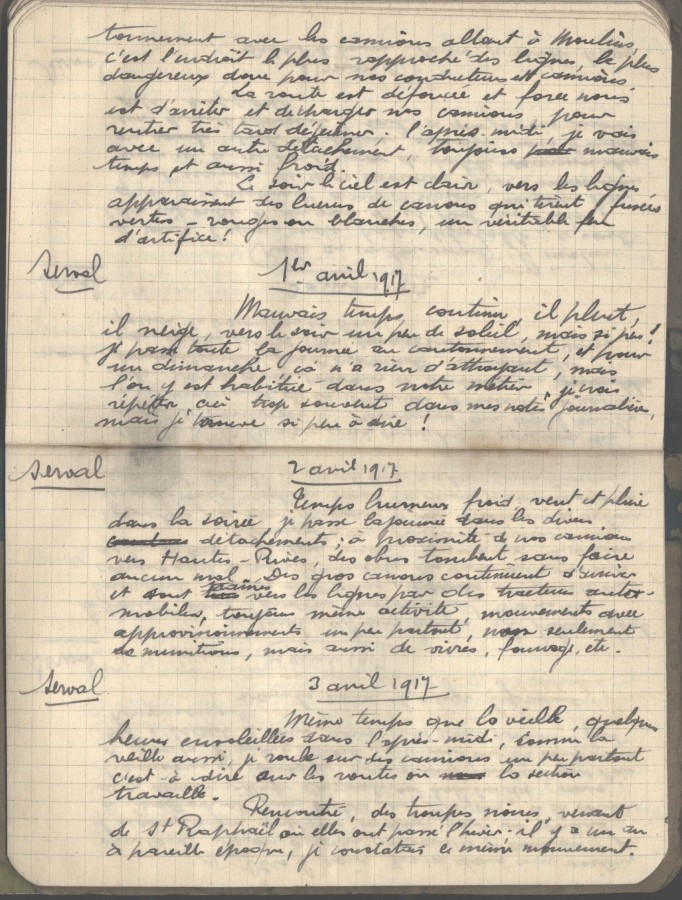 tonnement avec les camions allant à Moulins,
c'est l'endroit le plus rapproché des lignes, le plus
dangereux donc pour nos conducteurs et camions
La route est défoncée et force nous
est d'arrêter et décharger nos camions pour
rentrer très tard déjeuner. l'après-midi je vais
avec un autre détachement, toujours mauvais
temps et aussi froid.
Le soir le ciel est clair, vers les lignes
apparaissent des lueurs de canons qui tirent, fusées
vertes - rouges ou blanches, un véritable feu
d'artifice!
Serval 1er avril 1917
Mauvais temps, continu, il pleut,
il neige, vers le soir un peu de soleil, mais si peu!
je passe toute la journée au cantonnement, et pour
un dimanche ça n'a rien d'attrayant, mais
l'on y est habitué dans notre métier, je vais
répéter ceci trop souvent dans mes notes journalières,
mais je trouve si peu à dire!
Serval 2 avril 1917
Temps brumeux froid, vent et pluie
dans la soirée je passe la journée dans les divers
détachements; à proximité de nos camions
vers Hautes-Rives, des obus tombent sans faire
aucun mal. Des gros canons continuent d'arriver
et sont trainés vers les lignes par des tracteurs auto-
mobiles, toujours même activité, mouvements avec
approvisionnements un peu partout, non seulement
de munitions, mais aussi de vivres, fourrage, etc.
Serval 3 avril 1917
Même temps que la veille, quelques
heures ensoleillées dans l'après-midi, comme la
veille aussi, je roule sur des camions un peu partout
c'est-à-dire sur les routes où la section
travaille.
Rencontré, des troupes noires, venant
de St Raphaël où elles ont passé l'hiver - il y a un an
à pareille époque, je constatais ce même mouvement.